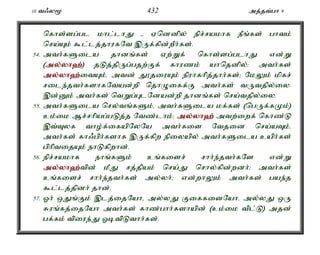 10 வ`லமூ 432 அத்தவ்பா 9
கொள்ளப்பட மாட்டாது - ஏனெனில் நிச்சயமாக நீங்கள் பாவம்
செய்யும் கூட்டத்தாராகவே இருக்கின்றீர்கள்.
54. அவர்களுடைய தானங்கள் ஏற்றுக் கொள்ளப்படாது என்று
(அல்லாஹ்) தடுத்திருப்பதற்குக் காரணம் யாதெனில்: அவர்கள்
அல்லாஹ்வையும், அவன் தூதரையும் நிராகரித்தார்கள்; மேலும் மிகச்
சடைந்தவர்களாகவேயன்றி தொழுகைக்கு அவர்கள் வருவதில்லை.
இன்னும் அவர்கள் வெறுப்புடனேயன்றி தானங்கள் செய்வதில்லை.
55. அவர்களுடைய செல்வங்களும், அவர்களுடைய மக்கள் (பெருக்கமும்)
உம்மை ஆச்சரியப்படுத்த வேண்டாம்; அல்லாஹ் அவற்றைக் கொண்டு
இவ்வுலக வாழ்க்கையிலேயே அவர்களை வேதனை செய்யவும்,
அவர்கள் காஃபிர்களாக இருக்கிற நிலையில் அவர்களுடைய உயிர்கள்
பிரிவதையும் நாடுகிறான்.
56. நிச்சயமாக நாங்களும் உங்களைச் சார்ந்தவர்களே என்று
அல்லாஹ்வின் மீது சத்தியம் செய்து சொல்கின்றனர்; அவர்கள்
உங்களைச் சார்ந்தவர்கள் அல்லர்; என்றாலும் அவர்கள் பயந்த
கூட்டத்தினர் தான்.
57. ஓர் ஒதுங்கும் இடத்தையோ, அல்லது குகைகளையோ, அல்லது ஒரு
சுரங்கத்தையோ அவர்கள் காண்பார்களாயின் (உம்மை விட்டு) அதன்
பக்கம் விரைந்து ஓடிவிடுவார்கள்.